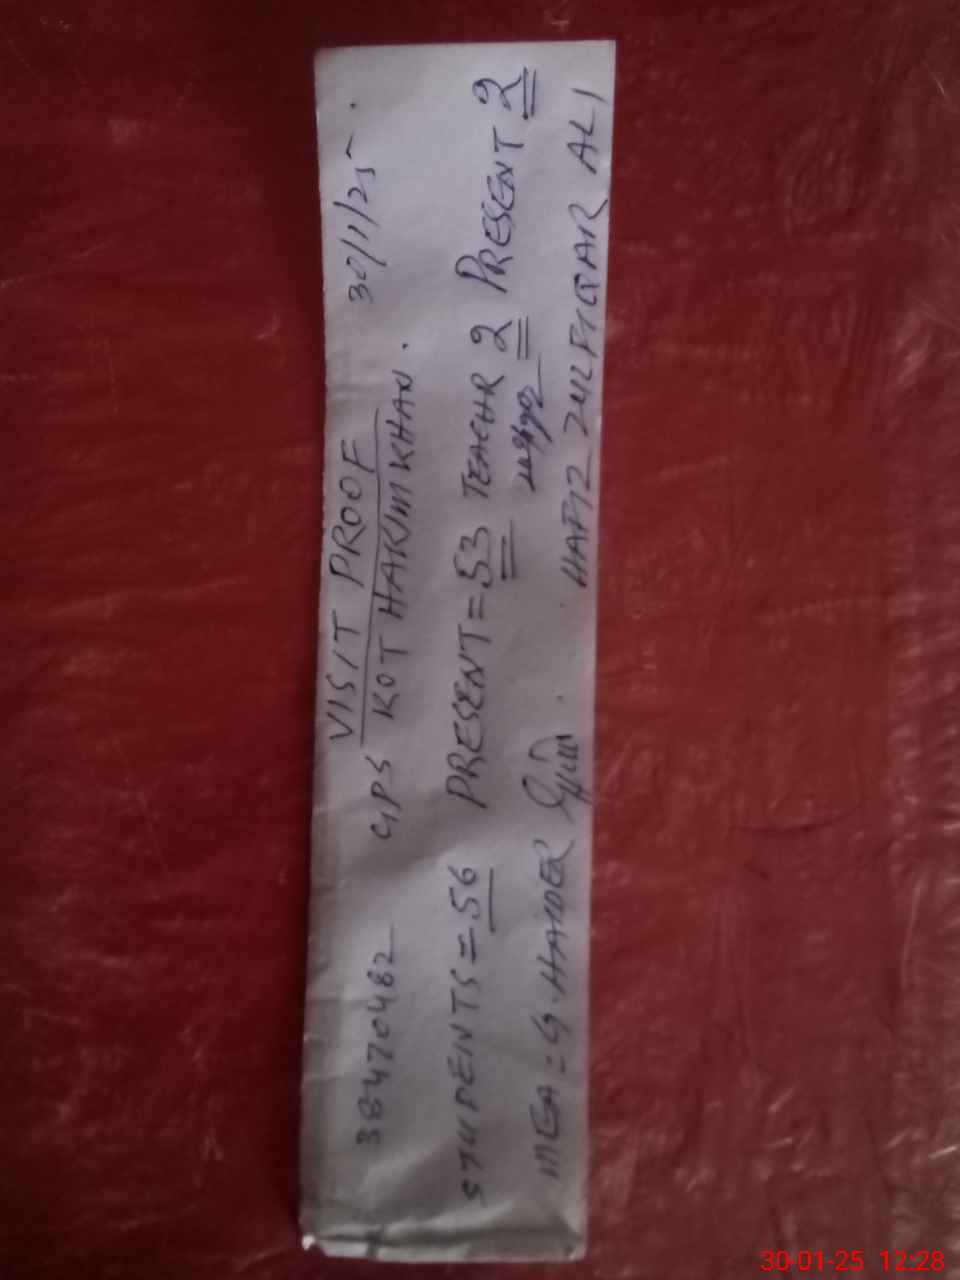 VISIT PROOF
38470482 GPS KOT HAKIM KHAN. 30/1/25
STUDENTS = 56 PRESENT = 53 TEACHR 2 PRESENT 2
MEA = G. HAIDER
HAFIZ ZULFIQAR ALI
30-01-25 12:28